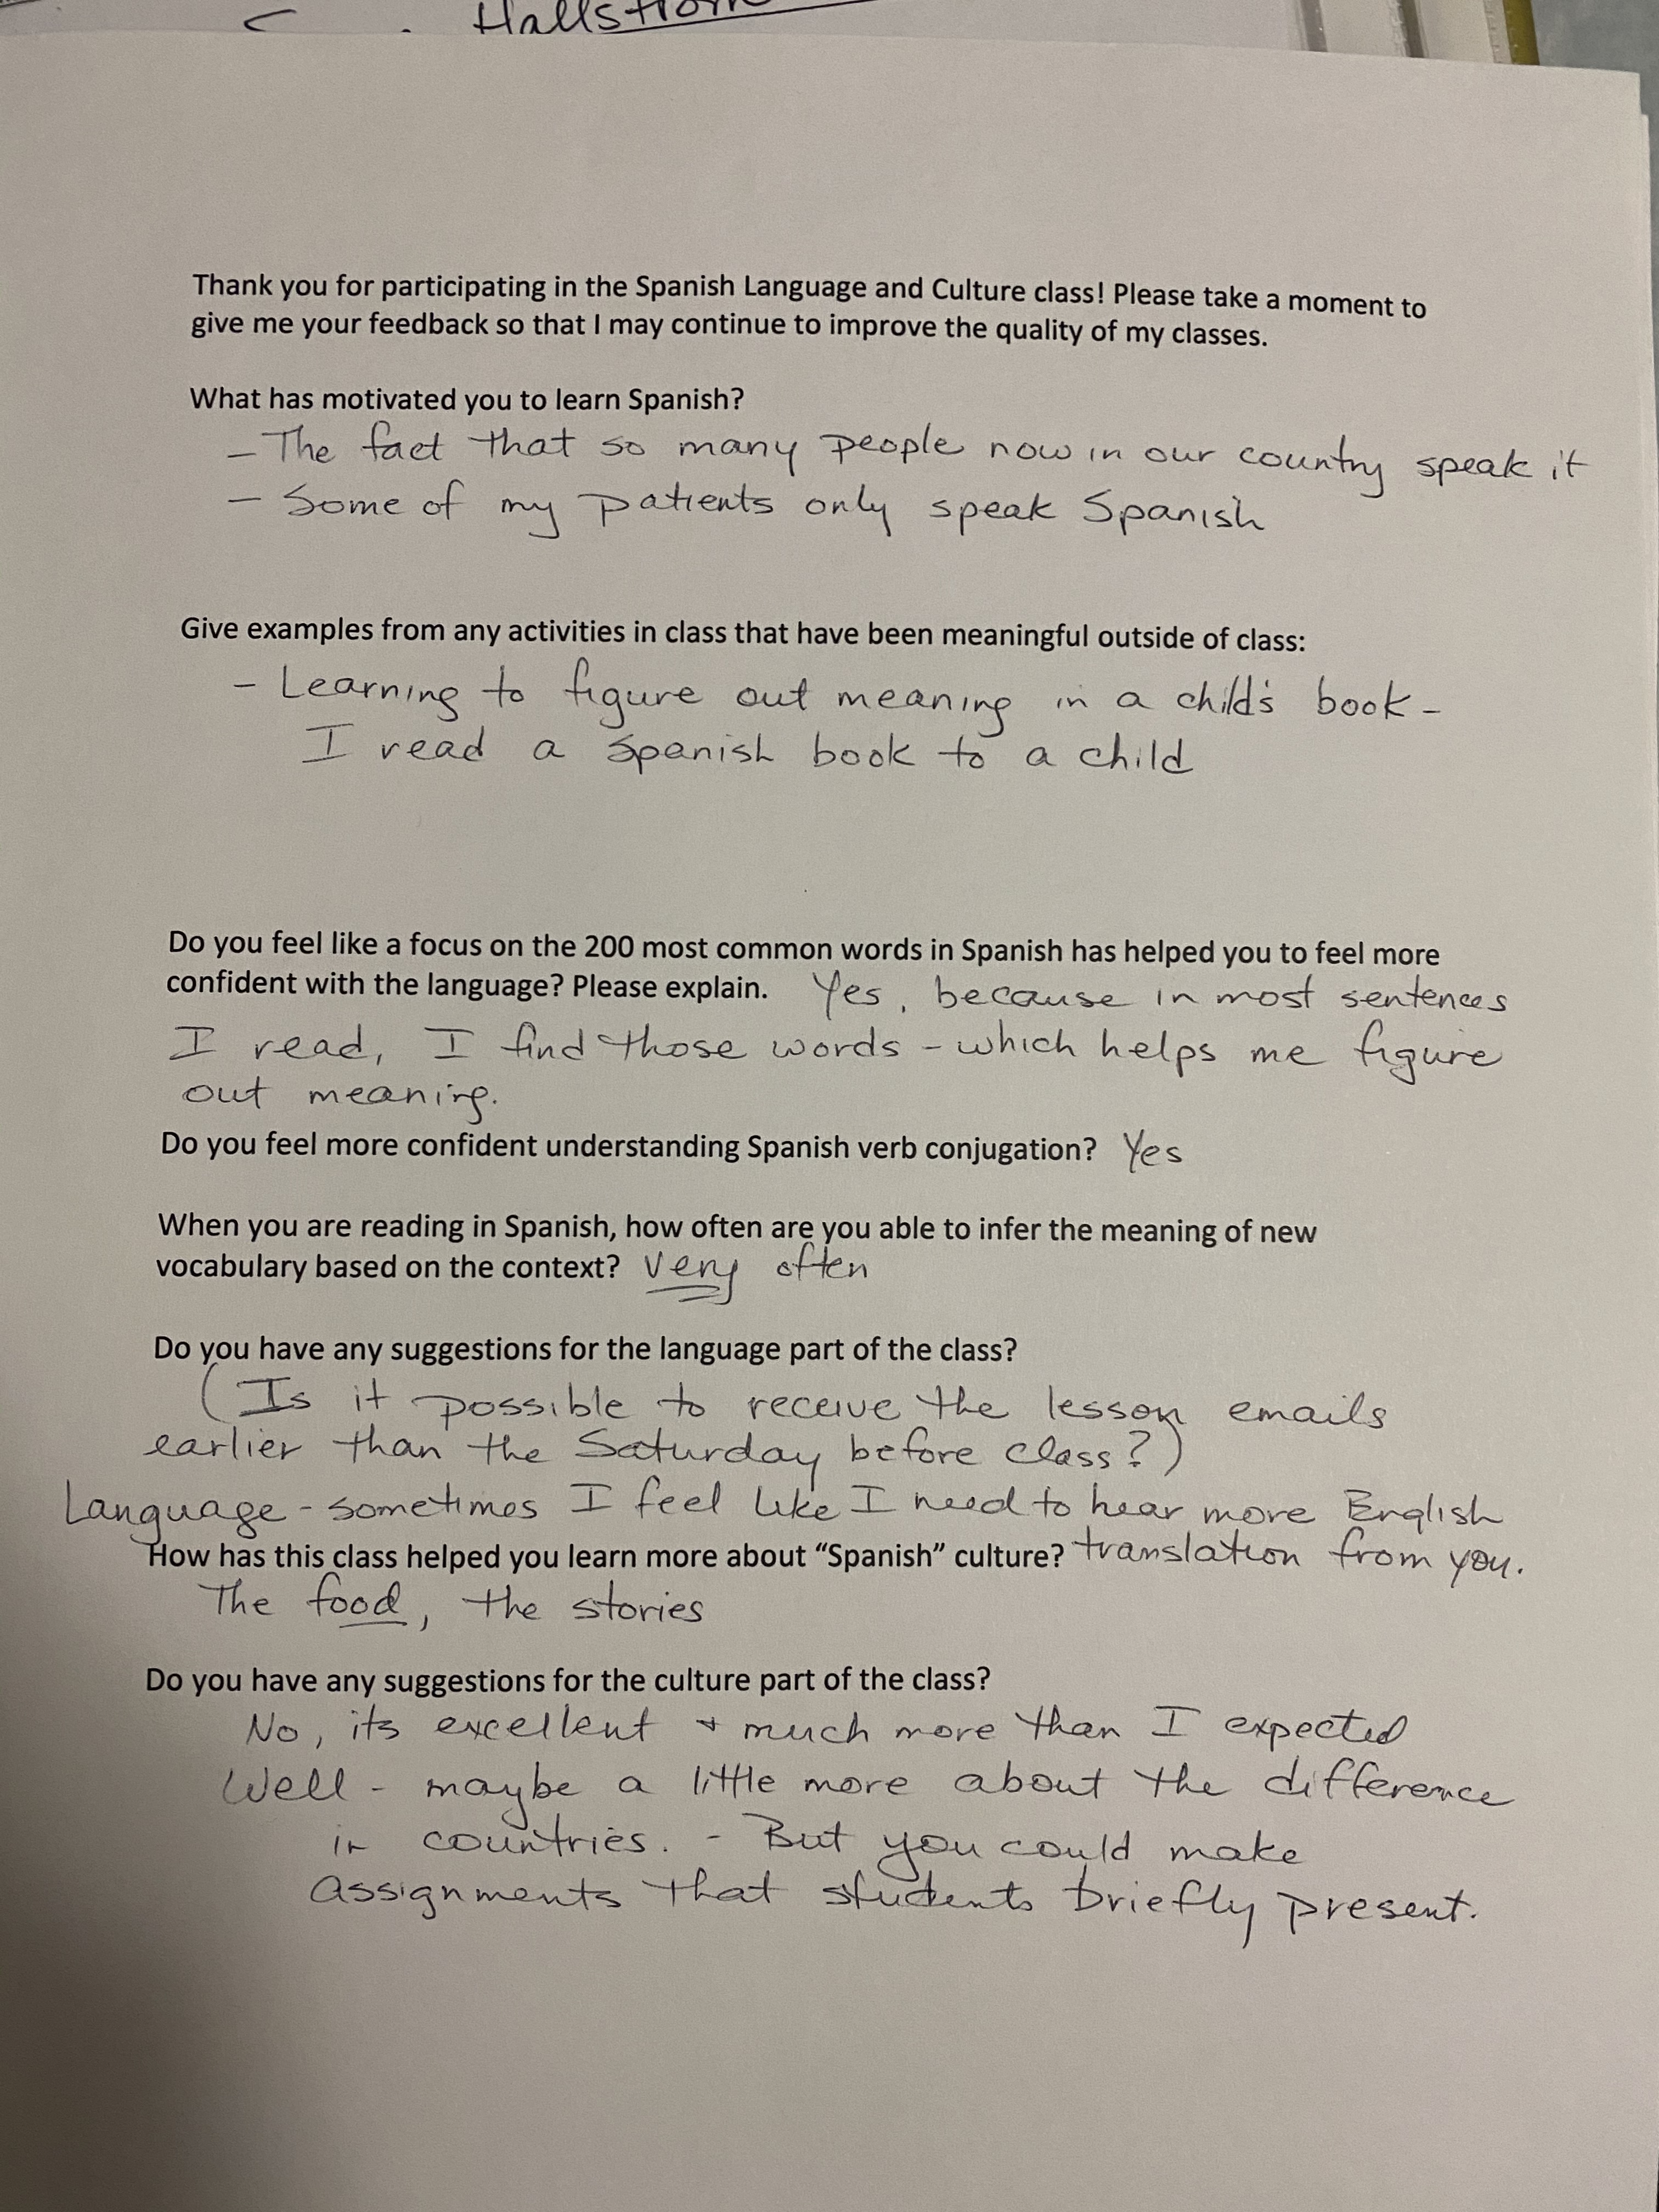 Hallstrom
Thank you for participating in the Spanish Language and Culture class! Please take a moment to
give me your feedback so that I may continue to improve the quality of my classes.
What has motivated you to learn Spanish?
- The fact that so many people now in our country speak it
- Some of my patients only speak Spanish
Give examples from any activities in class that have been meaningful outside of class:
- Learning to figure out meaning in a child's book -
I read a Spanish book to a child
Do you feel like a focus on the 200 most common words in Spanish has helped you to feel more
confident with the language? Please explain. Yes, because in most sentences
I read, I find those words - which helps me figure
out meaning.
Do you feel more confident understanding Spanish verb conjugation? Yes
When you are reading in Spanish, how often are you able to infer the meaning of new
vocabulary based on the context? Very often
Do you have any suggestions for the language part of the class?
(Is it possible to receive the lesson emails
earlier than the Saturday before class?)
Language - sometimes I feel like I need to hear more English
How has this class helped you learn more about “Spanish” culture? translation from you.
The food, the stories
Do you have any suggestions for the culture part of the class?
No, its excellent + much more than I expected
Well - maybe a little more about the difference
in countries. - But you could make
assignments that students briefly present.